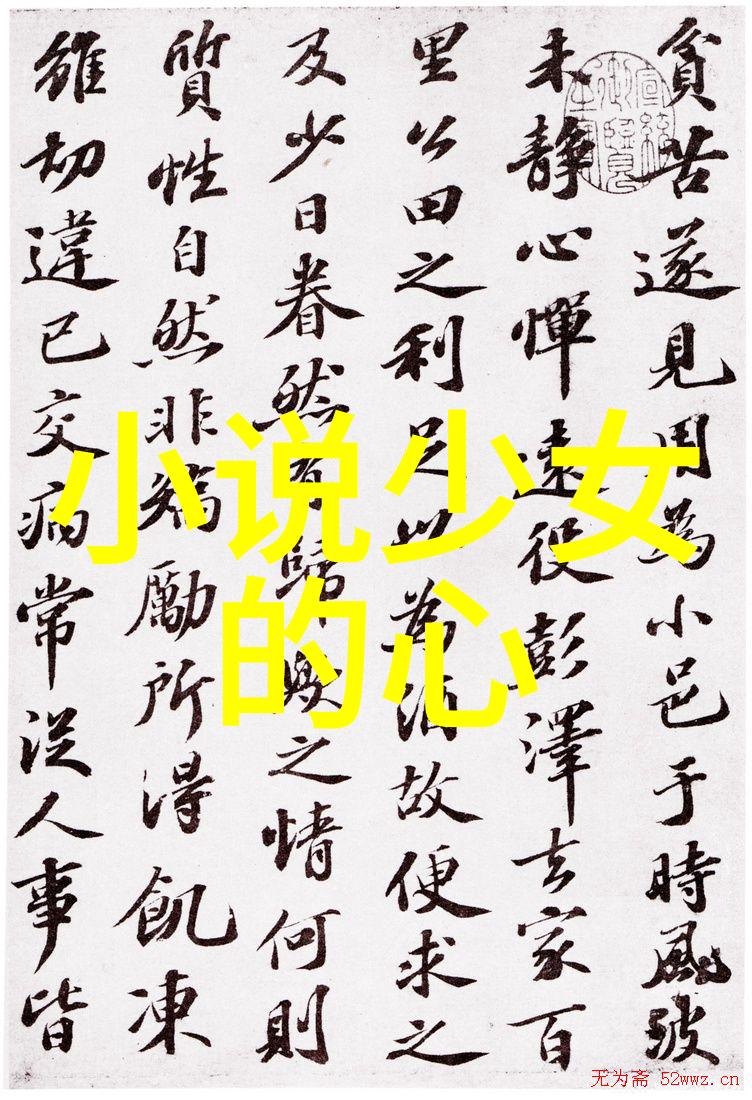 貧苦遂見用為小邑于時風波
未靜心憚遠役彭澤去家百
里公田之利足以為酒故便求之
及少日眷然有歸歟之情何則
質性自然非矯勵所得飢凍
雖切違己交病常從人事皆
小说少女
的心
无为斋 52wwz.cn